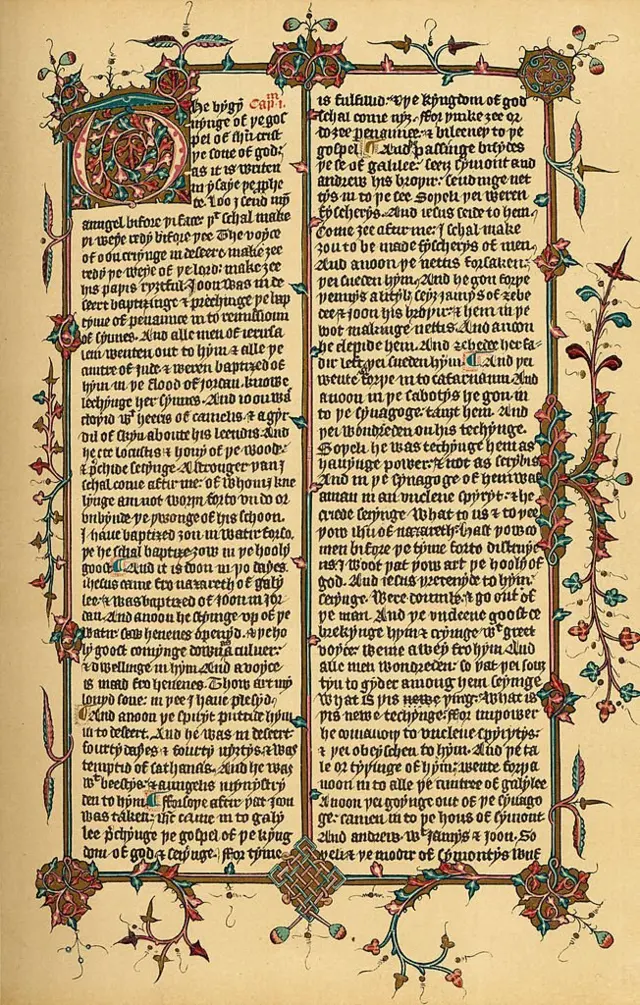 The bygy Cap. i.
nynge of ye gos
pel of ihū crist
ye sone of god:
as it is writen
in ysaye ye pphe
te. Loo J send my
aungel bifore yi face: yt schal make
yi weye redy bifore yee The voyce
of oon cryinge in desert: make zee
redy ye weye of ye lord: make zee
his papis ryztful. Joon was in de
seert baptizinge & prechinge ye bap
tyme of penaunce in to remissioun
of synnes. And alle men of ierusa
lem wenten out to hym & alle ye
cuntre of Jude & weren baptized of
hym in ye flood of Jordan knowe
lechynge her synnes. And ioon was
clopid wt heeris of camelis & a gyr
dil of skyn aboute his leendis. And
he ete locustis & hony of ye wode:
& pchide seiynge A stronger yan J
schal come aftir me: of whom J kne
lynge am not worpi forto vndo or
vnbynde ye ywonge of his schoon.
J haue baptized zou in watir forso
ye he schal baptize zow in ye hooly
goost And it is doon in yo dayes.
ihesus came fro nazareth of galy
lee: & was baptized of Joon in Jor
dan. And anoon he styinge vp of ye
watir saw heuenes openyd: & ye ho
ly goost comynge doun as a culuer:
& dwellinge in hym And a voyce
is maad fro heuenes. Thow art my
louyd sone: in yee J haue plesyd
And anoon ye spiryt puttide hym
in to desert. And he was in desert
fourty dayes & fourty nyztis & was
temptid of sathanas. And he was
wt beestys: & aungelis mynystry
den to hym. fforsoye after yat Joon
was taken: ihc came in to galy
lee pchynge ye gospel of ye kyng
dom of god & seiynge. ffor tyme
is fulfillid: & ye kyngdom of god
schal come nyz. ffor ymke zee or
do zee penaunce: & bileeuey to ye
gospel And he passinge bisydes
ye se of galilee: seez symont and
andrew his broyir: sendinge net
tys in to ye see Soyeli yei weren
fyscherys. And iesus seide to hem,
Come zee after me: J schal make
zou to be made fyscherys of men,
And anoon ye nettis forsaken:
yei sueden hym, And he gon forye
yennys a lityl: seyz jamys of zebe
dee & joon his broyir: & hem in ye
boot makinge nettis. And anoon
he clepide hem. And zebede her fa-
dir left yei sueden hym And yei
wente forye in to cafarnaum And
anoon in ye sabotys he gon in
to ye synagoge: tauzt hem. And
yei wondreden on his techynge.
Soyeli he was techynge hem as
hauynge power: & not as scrybis
And in ye synagoge of hem was
a man in an vnclene spyryt: & he
criede seiynge What to us & to yee
yow ihu of nazareth: Hast yow co
men bifore ye tyme forto distruye
us: J woot yat yow art ye hooly of
god. And iesus yretenyde to hym:
seiynge. Were doumb: & go out of
ye man And ye vnclene goost de
brekynge hym & cryinge wt greet
voyce: wente awey fro hym And
alle men wondreden: so yat yei souz
tyn to gyder among hem seiynge
What is yis newe ying: What is
yis newe techynge: ffor in power
he comaundy to vnclene spyrytys:
& yei obeyschen to hym. And ye ta
le or tyyinge of hym: wente forya
noon in to alle ye cuntree of galylee
Anoon yei goynge out of ye synago
ge: camen in to ye hous of symont
And andrew. wt Jamys & joon, So
yeli & ye modir of symontys wyf